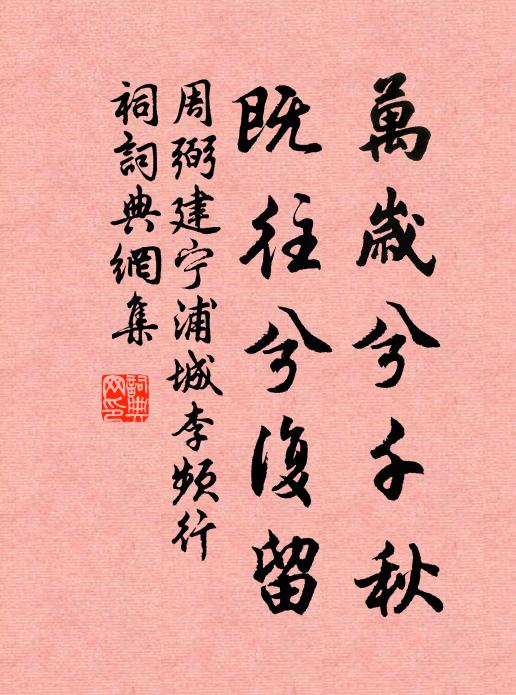 萬歲兮千秋
既往兮復留
周弼建宁浦城李頻行
祠詞典網集
詞典
网印